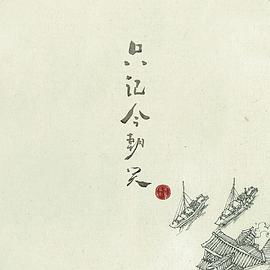 只记今朝笑